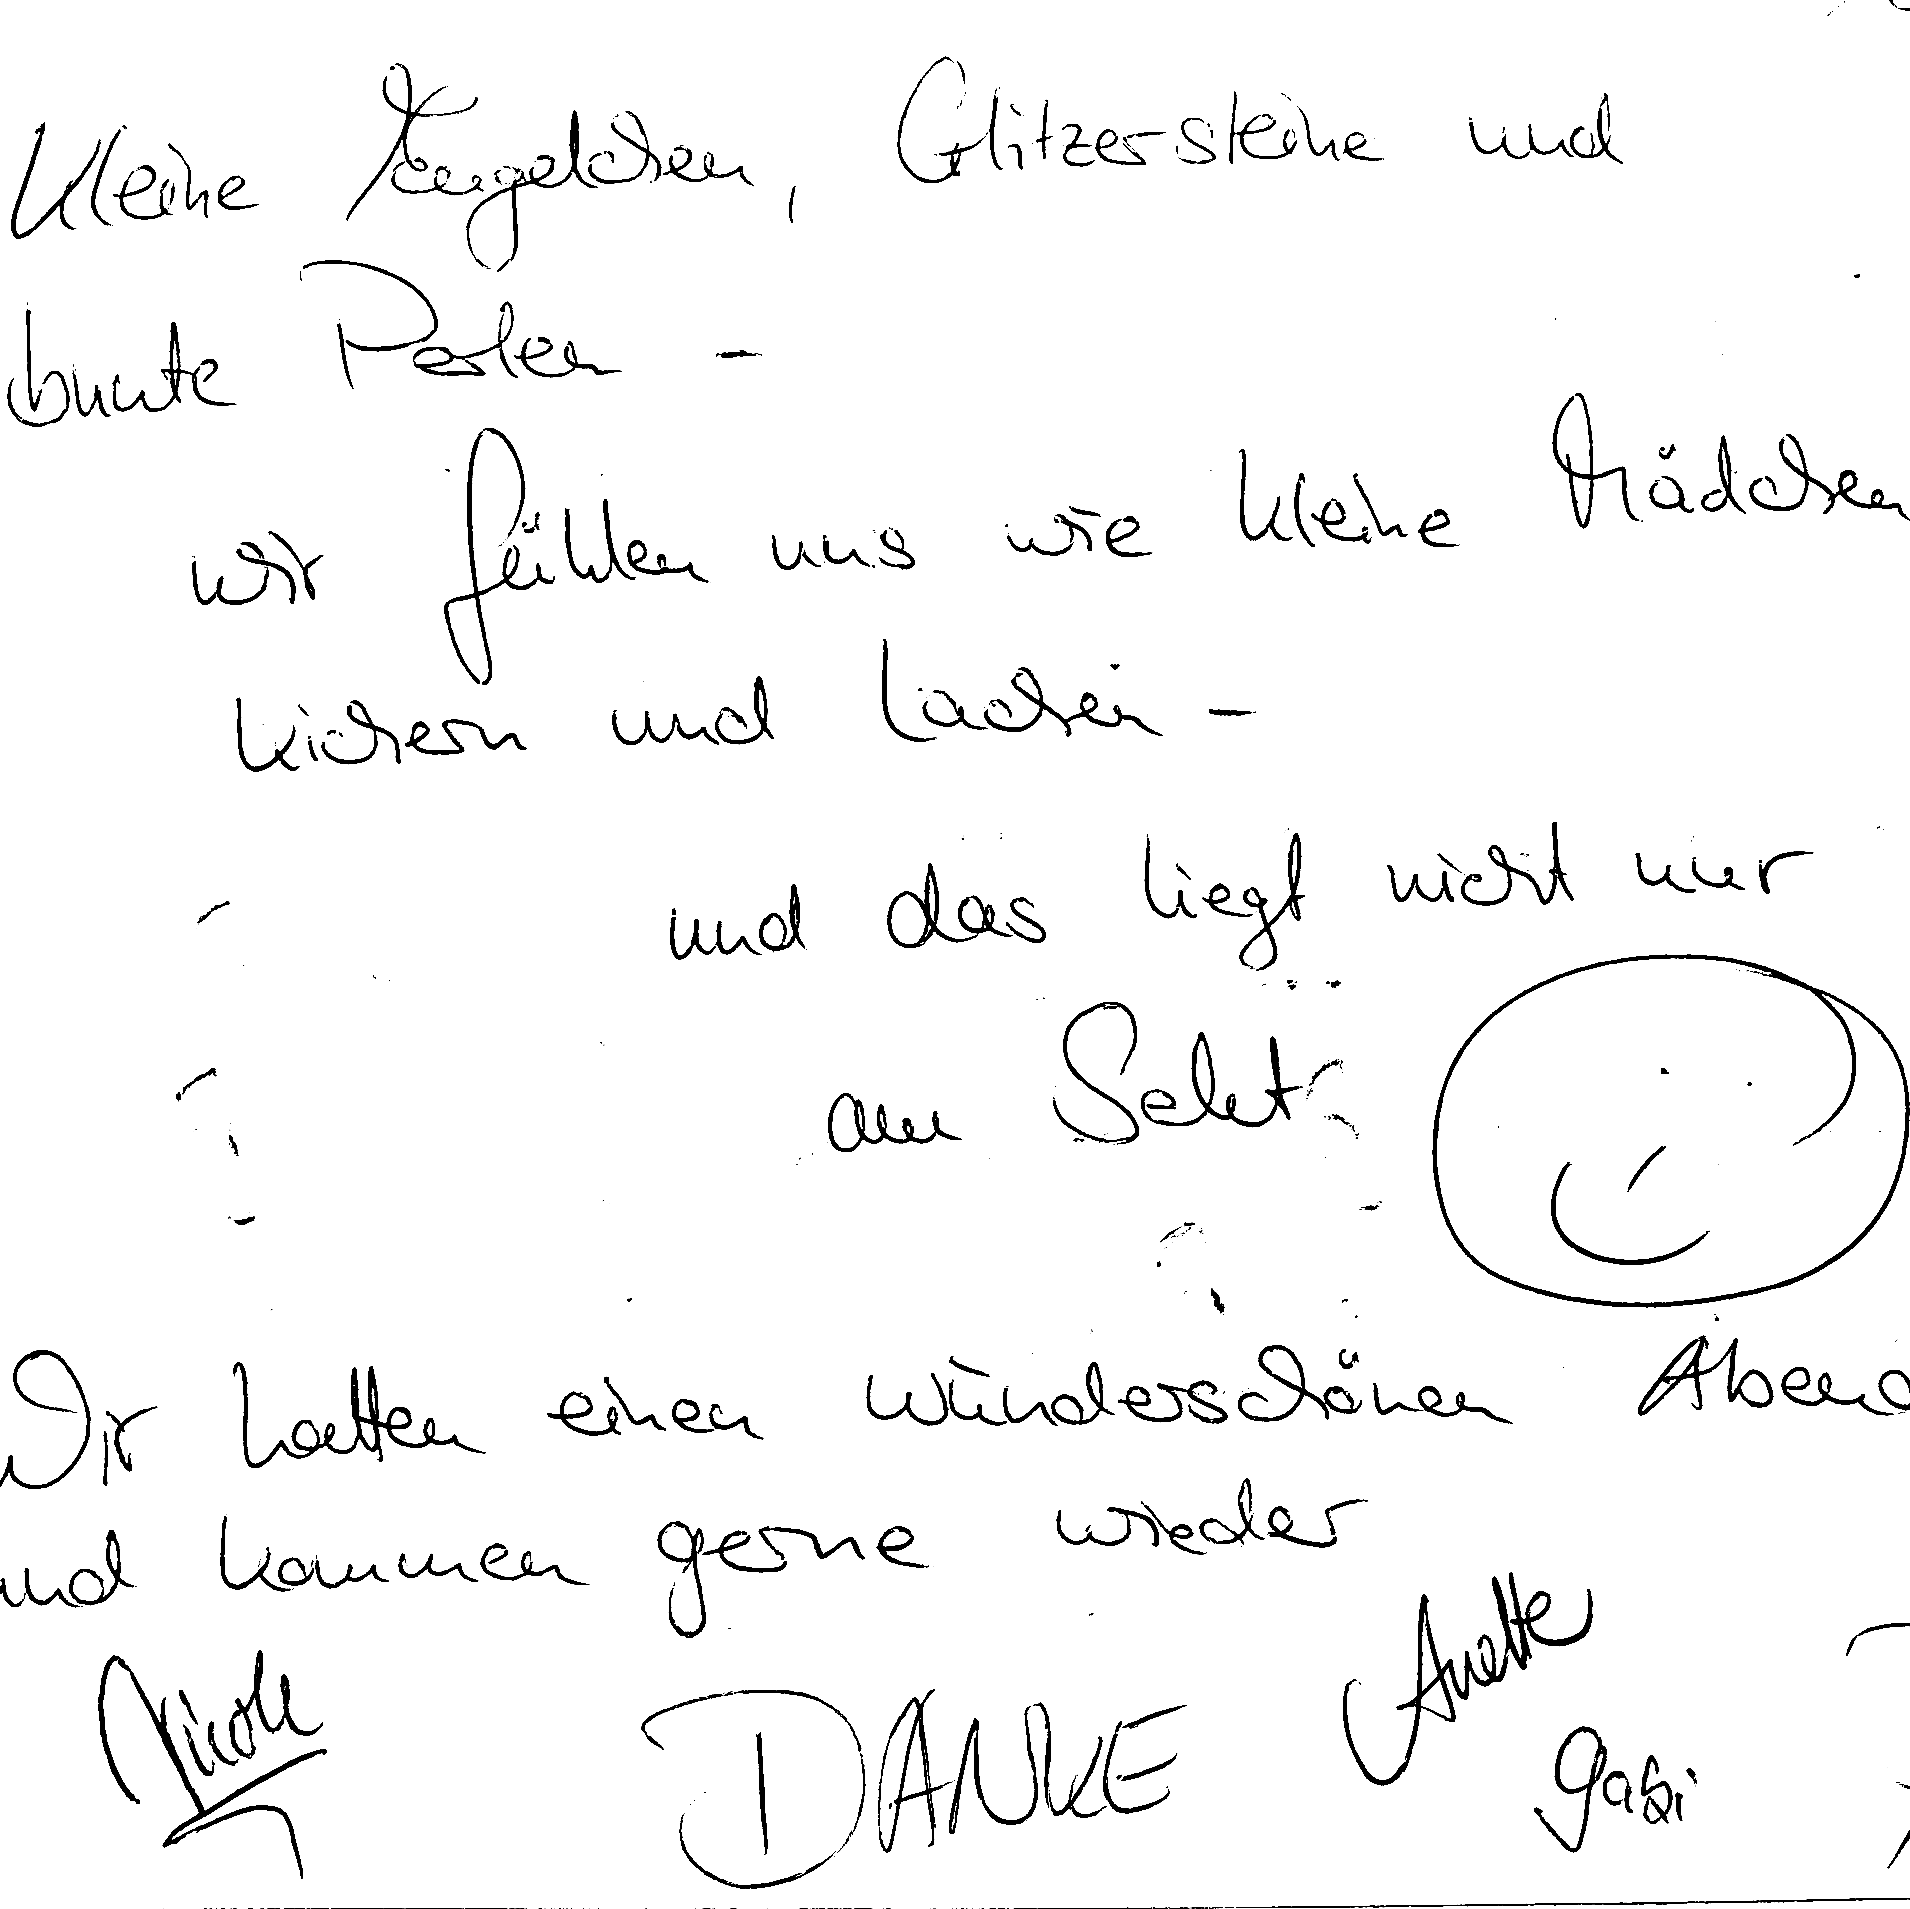 Kleine Engelchen, Glitzersteine und
bunte Perlen -
wir fühlen uns wie kleine Mädchen
kichern und lachen -
und das liegt nicht nur
am Sekt
Wir hatten einen wunderschönen Abend
und kommen gerne wieder
Nicole
DANKE
Anette
Gabi